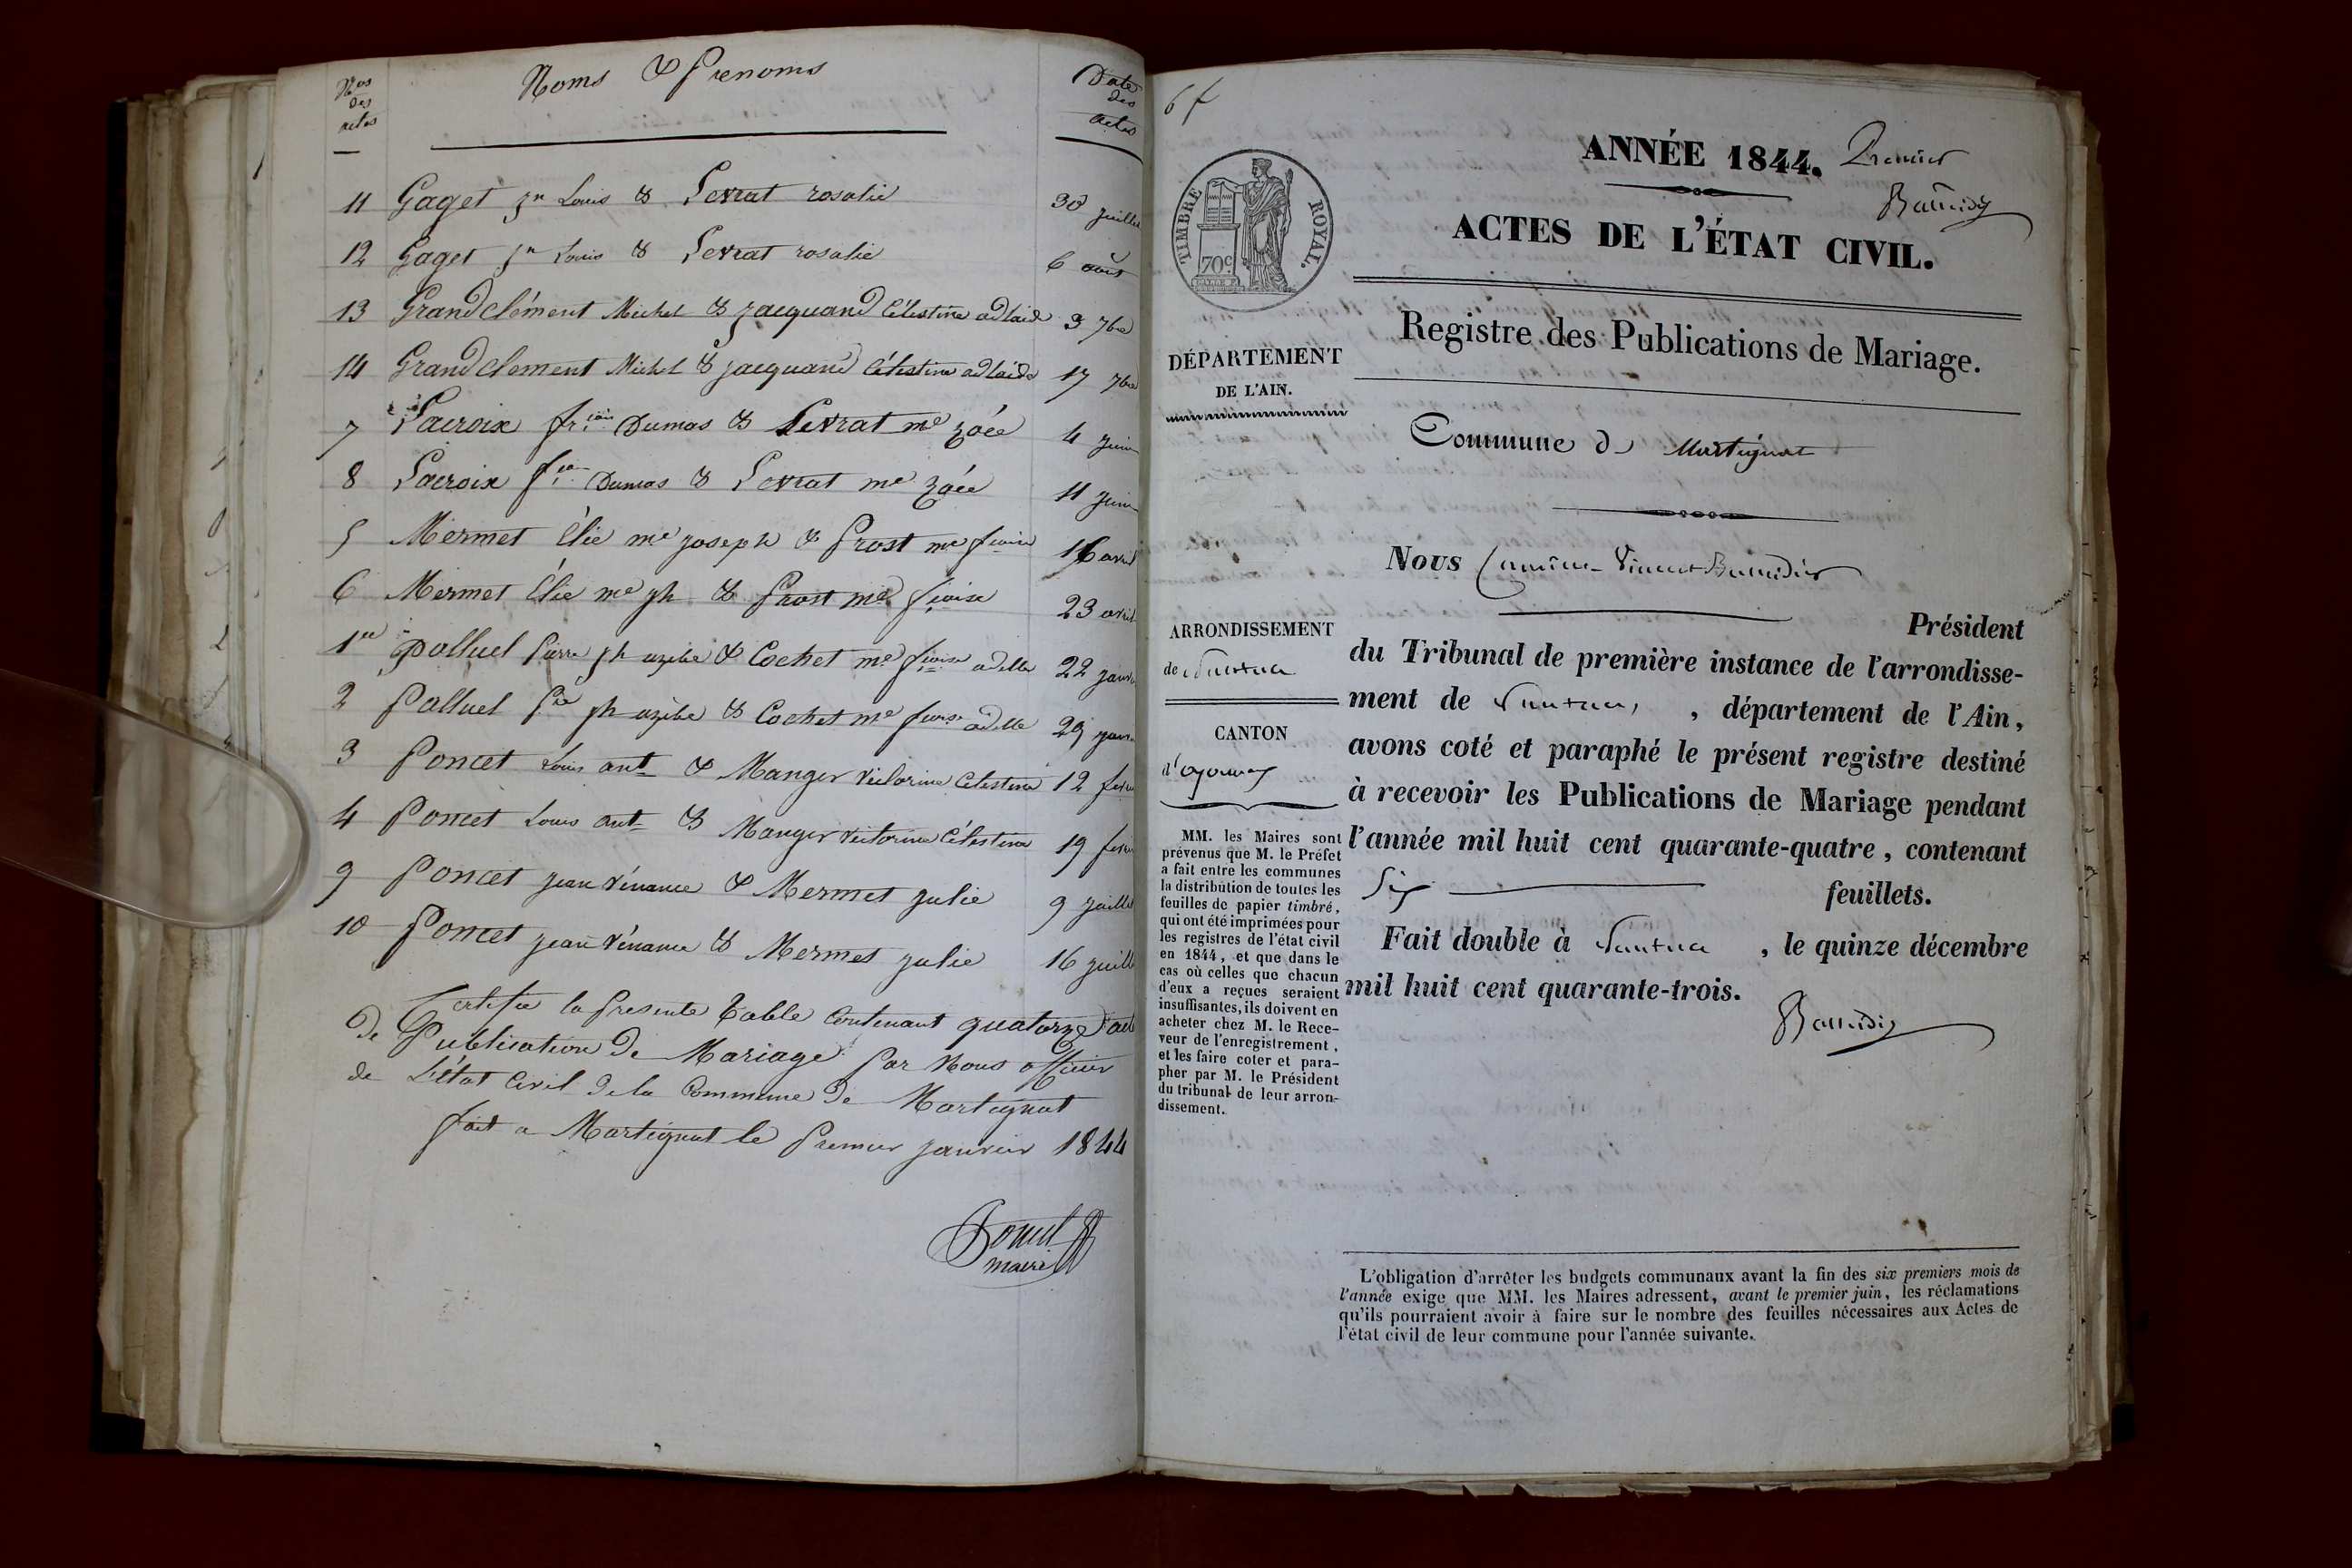 Nos
des
actes
Noms & Prenoms
Date
des
actes
11 Gaget jn Louis & Levrat rosalie 30 juillet
12 Gaget jn Louis & Levrat rosalie 6 août
13 Grandclément Michel & jacquand Célestine adlaide 3 7bre
14 Grandclement Michel & jacquand Célestine adlaide 17 7bre
7 Lacroix Dumas & Levrat me zoée 4 juin
8 Lacroix Dumas & Levrat me zoée 11 juin
5 Mermet Élie me joseph & Prost me 16 avril
6 Mermet Élie me jh & Prost me fcoise 23 avril
1er Palluel Pierre jh & Cochet me fcoise adelle 22 janv
2 Palluel Pre jh & Cochet me fcoise adelle 29 janv
3 Poncet Louis ant & Manger victorine Célestine 12 fev
4 Poncet Louis ant & Manger victorine Célestine 19 fev
9 Poncet jean Vénance & Mermet julie 9 juillet
10 Poncet jean Vénance & Mermet julie 16 juill
Certifié la presente table Contenant quatorze act
de Publication de Mariage par Nous officier
de L'état Civil de la Commune de Martignat
fait a Martignat le Premier janvier 1844
maire
6 f
ANNÉE 1844. Premier
TIMBRE ROYAL.
70c.
ACTES DE L'ÉTAT CIVIL.
Registre des Publications de Mariage.
DÉPARTEMENT
DE L'AIN.
Commune de Martignat
Nous
Président
ARRONDISSEMENT
de Nantua
CANTON
d'Oyonnax
MM. les Maires sont
prévenus que M. le Préfet
a fait entre les communes
la distribution de toutes les
feuilles de papier timbré,
qui ont été imprimées pour
les registres de l'état civil
en 1844, et que dans le
cas où celles que chacun
d'eux a reçues seraient
insuffisantes, ils doivent en
acheter chez M. le Rece-
veur de l'enregistrement,
et les faire coter et para-
pher par M. le Président
du tribunal de leur arron-
dissement.
du Tribunal de première instance de l'arrondisse-
ment de Nantua, , département de l'Ain,
avons coté et paraphé le présent registre destiné
à recevoir les Publications de Mariage pendant
l'année mil huit cent quarante-quatre, contenant
Six feuillets.
Fait double à Nantua , le quinze décembre
mil huit cent quarante-trois.
L'obligation d'arrêter les budgets communaux avant la fin des six premiers mois de
l'année exige que MM. les Maires adressent, avant le premier juin, les réclamations
qu'ils pourraient avoir à faire sur le nombre des feuilles nécessaires aux Actes de
l'état civil de leur commune pour l'année suivante.